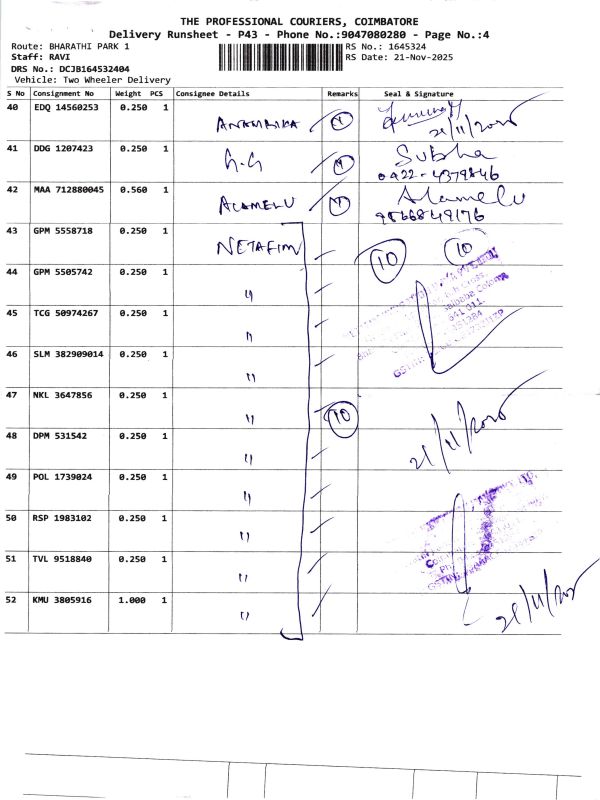 THE PROFESSIONAL COURIERS, COIMBATORE
Delivery Runsheet - P43 - Phone No.:9047080280 - Page No.:4
Route: BHARATHI PARK 1
RS No.: 1645324
Staff: RAVI
RS Date: 21-Nov-2025
DRS No.: DCJB164532404
Vehicle: Two Wheeler Delivery
S No Consignment No Weight PCS Consignee Details Remarks Seal & Signature
40 EDQ 14560253 0.250 1
21/11/2025
41 DDG 1207423 0.250 1
G.G Subha
0422-4379846
42 MAA 712880045 0.560 1
ALAMELU Alamelu
9566849176
43 GPM 5558718 0.250 1
NETAFIM 10 10
44 GPM 5505742 0.250 1
"
45 TCG 50974267 0.250 1
"
46 SLM 382909014 0.250 1
"
47 NKL 3647856 0.250 1
" 10
21/11/2025
48 DPM 531542 0.250 1
"
49 POL 1739024 0.250 1
"
50 RSP 1983102 0.250 1
"
51 TVL 9518840 0.250 1
"
52 KMU 3805916 1.000 1
" 21/11/2025